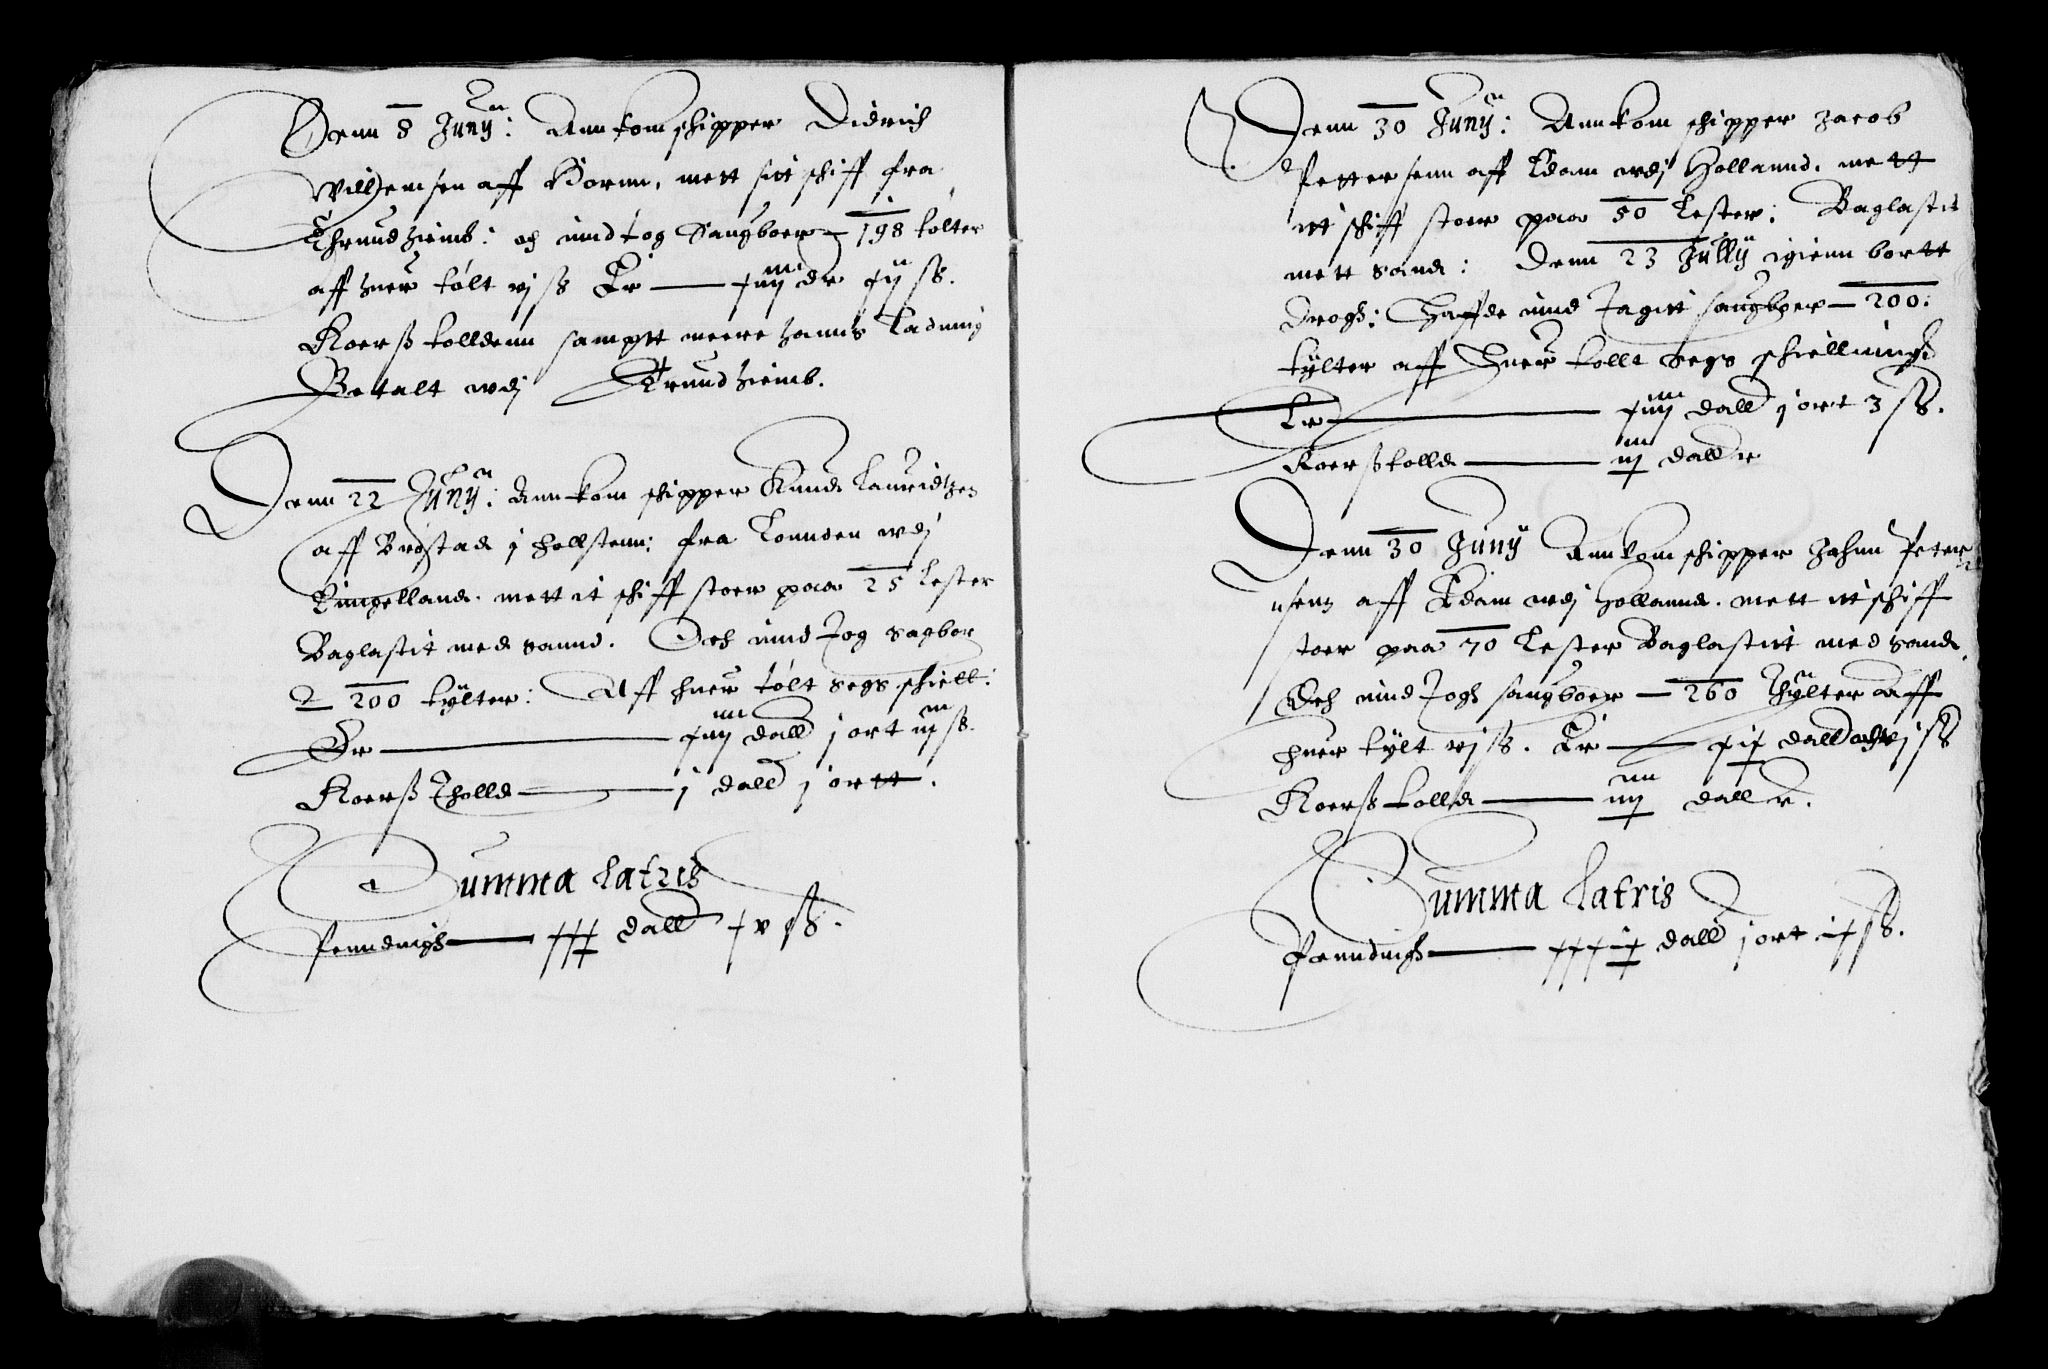 Denn 8 Juny: Annkom schipper Didrich
Willemsen aff Hornn, mett sitt schiff fra
Thrundhiemb: och inndtog Saugboer – 198 tolter
aff huer tølt vj ss Er — xiiij dr xij ss.
Koerss tolldenn sampt meere hanns Ladning
Betalt wdj Trundhiemb.
Denn 22 Juny: Annkom schipper Knud Lauridtzen
aff Brøstad j hollstenn: fra Lonnden wdj
Enngelland. mett it schiff stoer paa 25 Lester
Baglastit med sannd. Och inndtog sagbor
200 tylter: Aff huer tølt segs schiell:
Er — xiiij dall j ort iij ss.
Koerss Tholld — j dall j ortt.
Summa Latris
Penndingh — xxx dall xv ss.
Denn 30 Juny: Annkom schipper Jacob
Pettersenn aff Edam wdj Hollannd. mett
itt schiff stoer paa 50 Lester: Baglastit
mett sand: Denn 23 Jully igienn bortt
drogh: Haffde inndtagitt saugboer – 200:
tylter aff Huer tollt segs schiellinngh
Er — xiiij dall j ort 3 ss.
Koerss tolld — iij daller
Denn 30 Juny Annkom schipper Johnn Peter
senn aff Edam wdj Hollannd. mett itt schiff
stoer paa 70 Lester Baglastitt med sand
Och inndtogh saugboer – 260 Thylter Aff
huer tylt vj ss. Er — xix dall och vj ss
Koerss tolld — iiij daller.
Summa Latris
Penndingh — xxxix dall j ort ix ss.